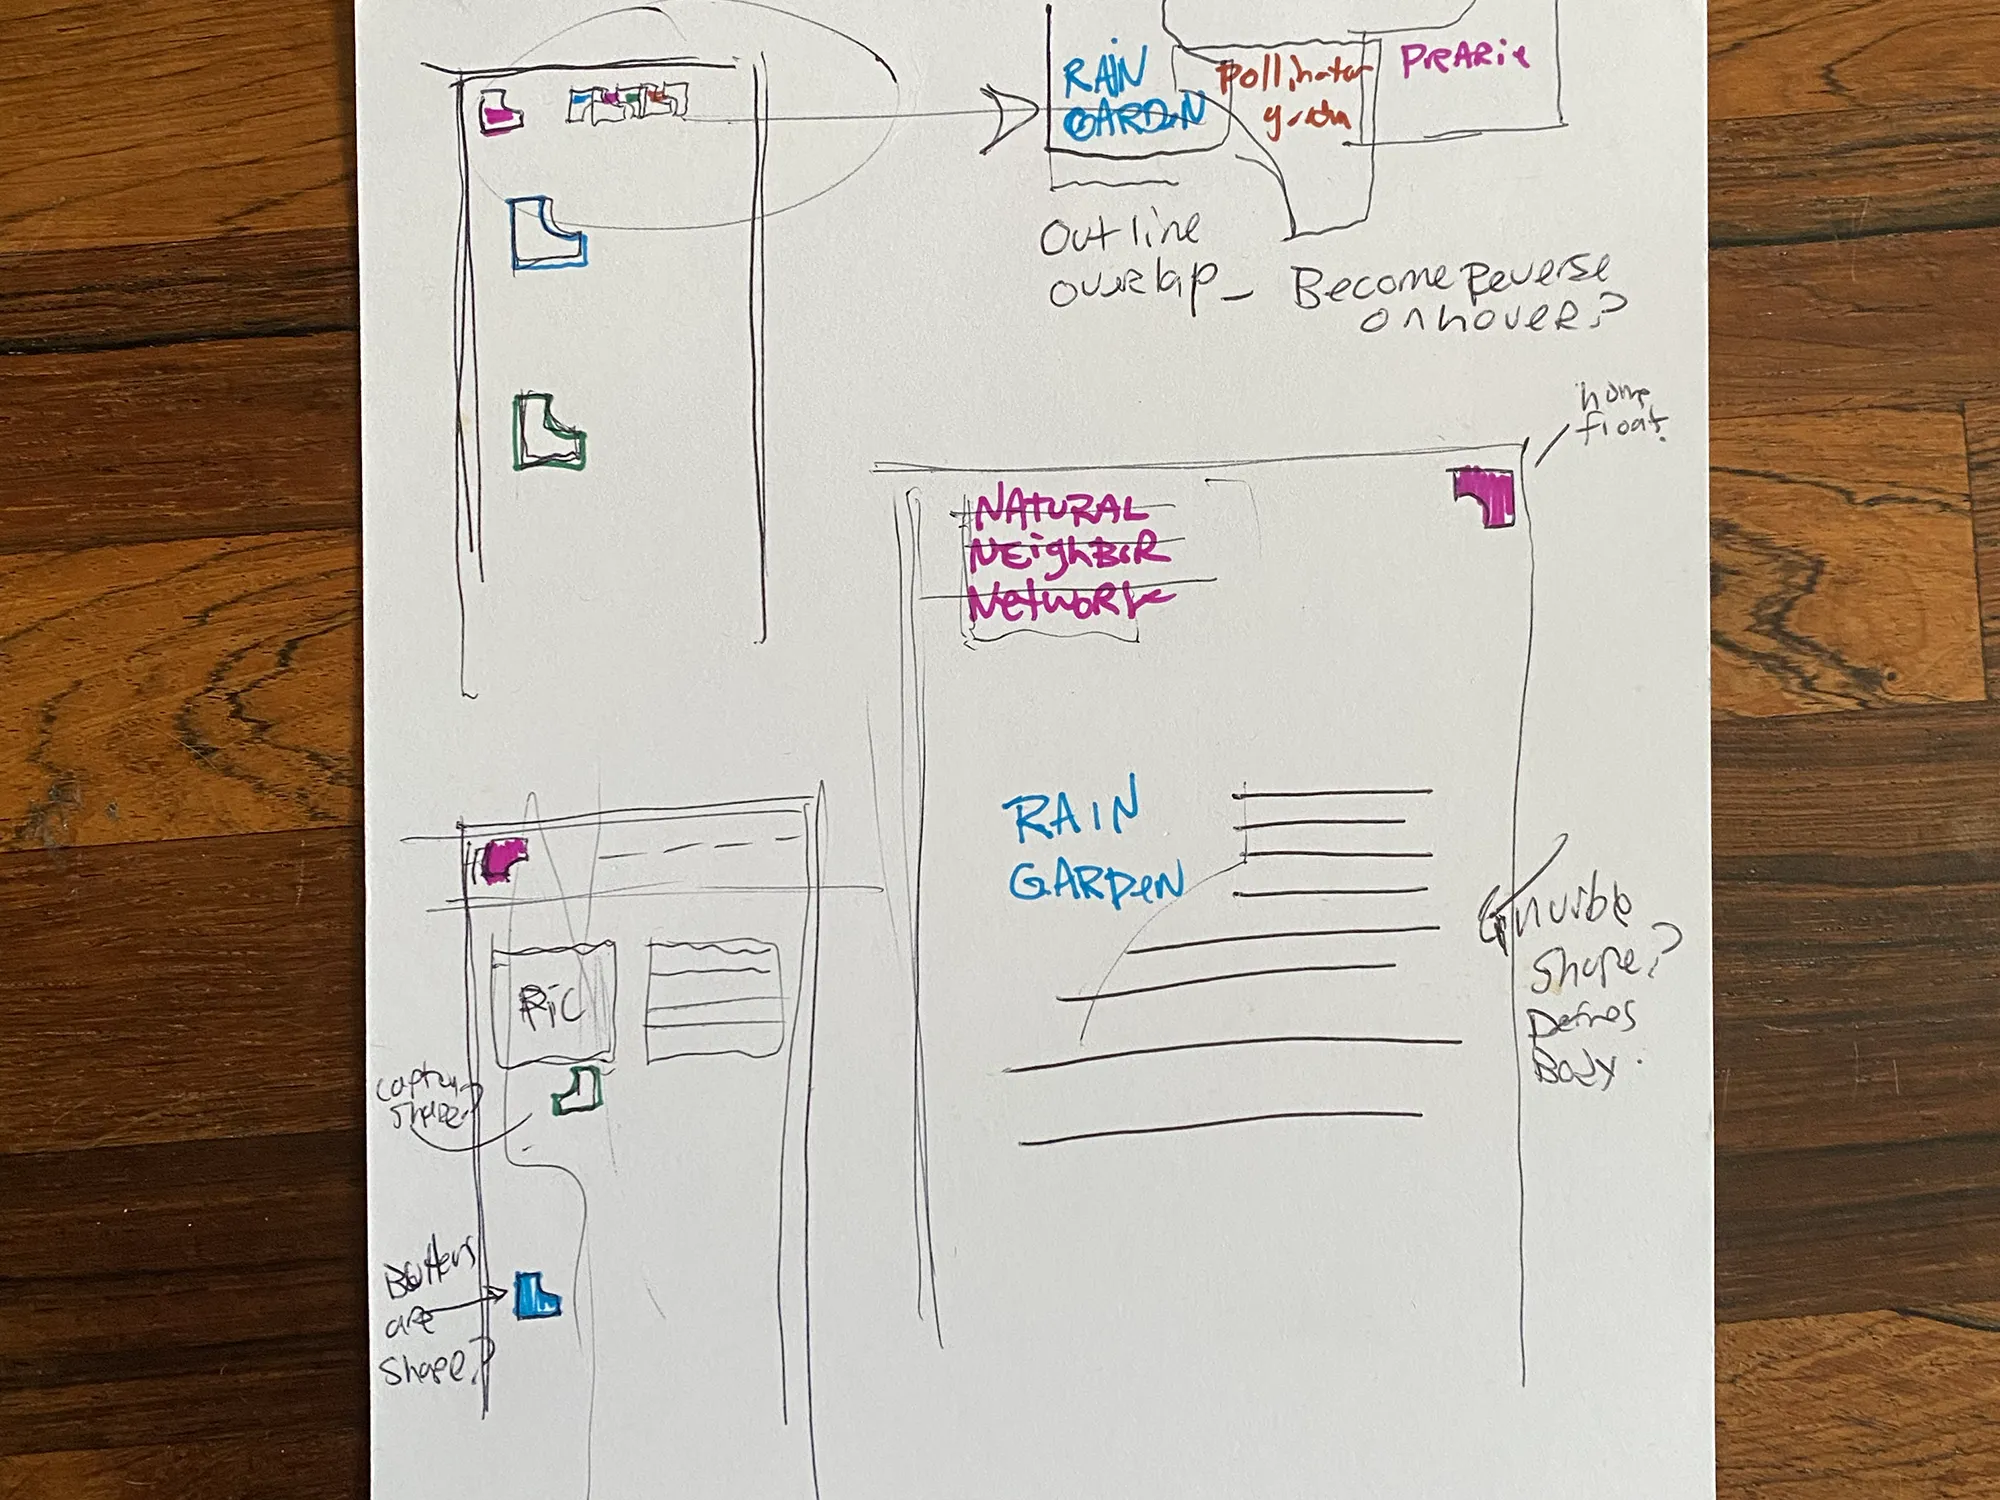 RAIN
GARDEN
Pollinator
PreARie
Outline
overlap_
Become Reverse
on hover?
home
float.
NATURAL
NEighBoR
NetwoRk
RAIN
GARDeN
invisible
Shape?
Defines
Body.
PiC
Capture
Shape?
Buttons
are
Shape?